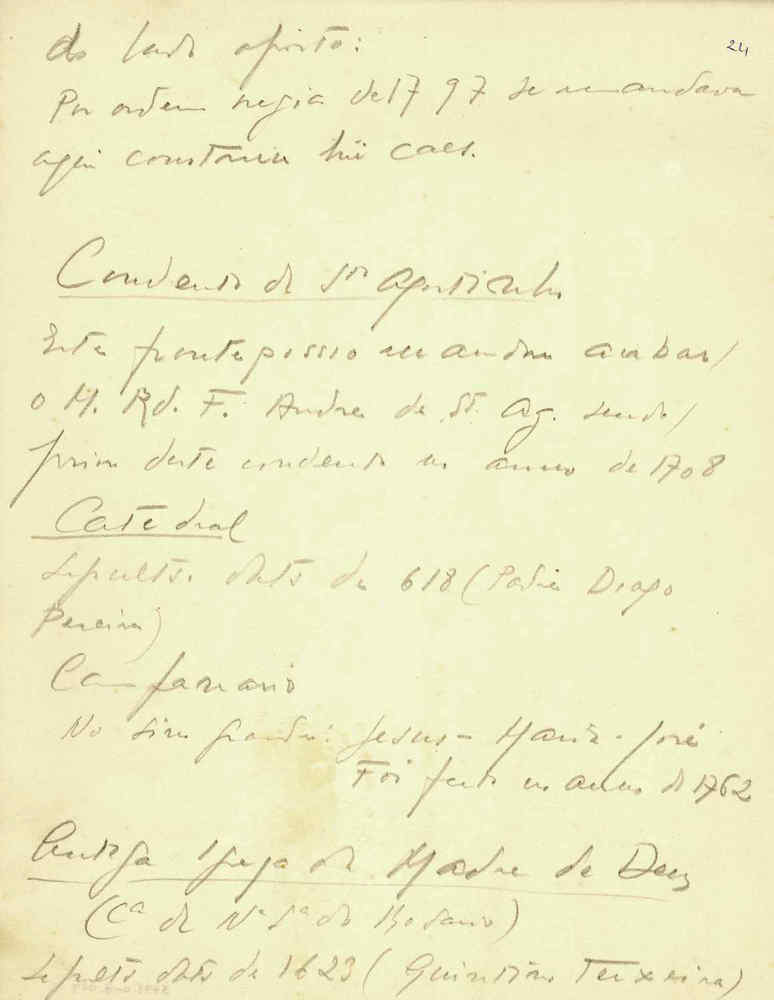 24
do lado oposto:
Por ordem regia de 1797 se mandava
aqui construir hũ caes.
Convento de Sto Agostinho
Este frontepissio mandou acabar/
o M. Rd. F. Andre de St. Ag. sendo/
prior deste convento no anno de 1708
Catedral
Sepultᵃ data de 618 (Padre Diogo
Pereira)
Campanario
No sino grande: Jesus - Maria - José
Foi feito no anno de 1762
Antiga Igreja da Madre de Deus
(Cª de Nª Sª do Rosario)
Sepultª data de 1623 ( Teixeira)